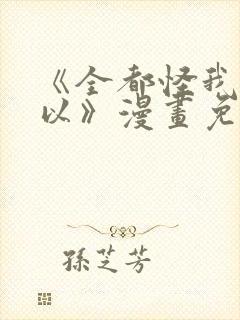 《全都怪我
以》漫畫免
孫芝芳